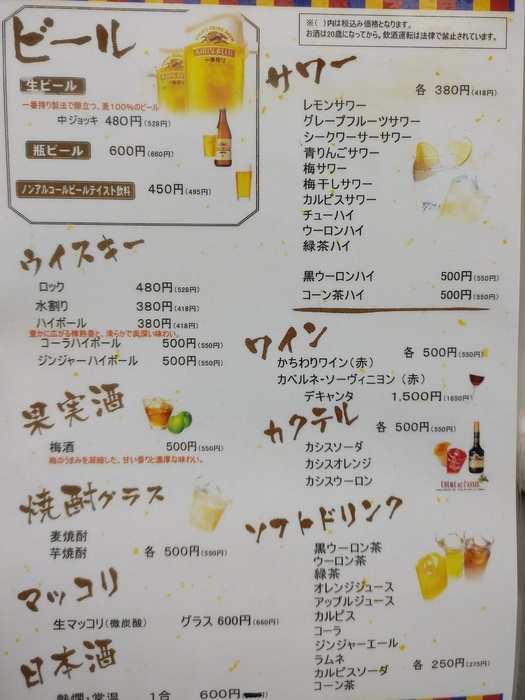 ビール
生ビール
一番搾り製法で際立つ、麦100%のビール
中ジョッキ 480円(528円)
瓶ビール 600円(660円)
ノンアルコールビールテイスト飲料 450円(495円)
ウイスキー
ロック 480円(528円)
水割り 380円(418円)
ハイボール 380円(418円)
豊かに広がる樽熟香と、滑らかで奥深い味わい。
コーラハイボール 500円(550円)
ジンジャーハイボール 500円(550円)
果実酒
梅酒 500円(550円)
梅のうまみを凝縮した、甘い香りと濃厚な味わい。
焼酎グラス
麦焼酎
芋焼酎 各 500円(550円)
マッコリ
生マッコリ(微炭酸) グラス 600円(660円)
日本酒
熱燗・常温 1合 600円
※( )内は税込み価格となります。
お酒は20歳になってから。飲酒運転は法律で禁止されています。
サワー
各 380円(418円)
レモンサワー
グレープフルーツサワー
シークワーサーサワー
青りんごサワー
梅サワー
梅干しサワー
カルピスサワー
チューハイ
ウーロンハイ
緑茶ハイ
黒ウーロンハイ 500円(550円)
コーン茶ハイ 500円(550円)
ワイン
各 500円(550円)
かちわりワイン(赤)
カベルネ・ソーヴィニヨン(赤)
デキャンタ 1,500円(1650円)
カクテル
各 500円(550円)
カシスソーダ
カシスオレンジ
カシスウーロン
CREME DE CASSIS
ソフトドリンク
黒ウーロン茶
ウーロン茶
緑茶
オレンジジュース
アップルジュース
カルピス
コーラ
ジンジャーエール
ラムネ
カルピスソーダ 各 250円(275円)
コーン茶